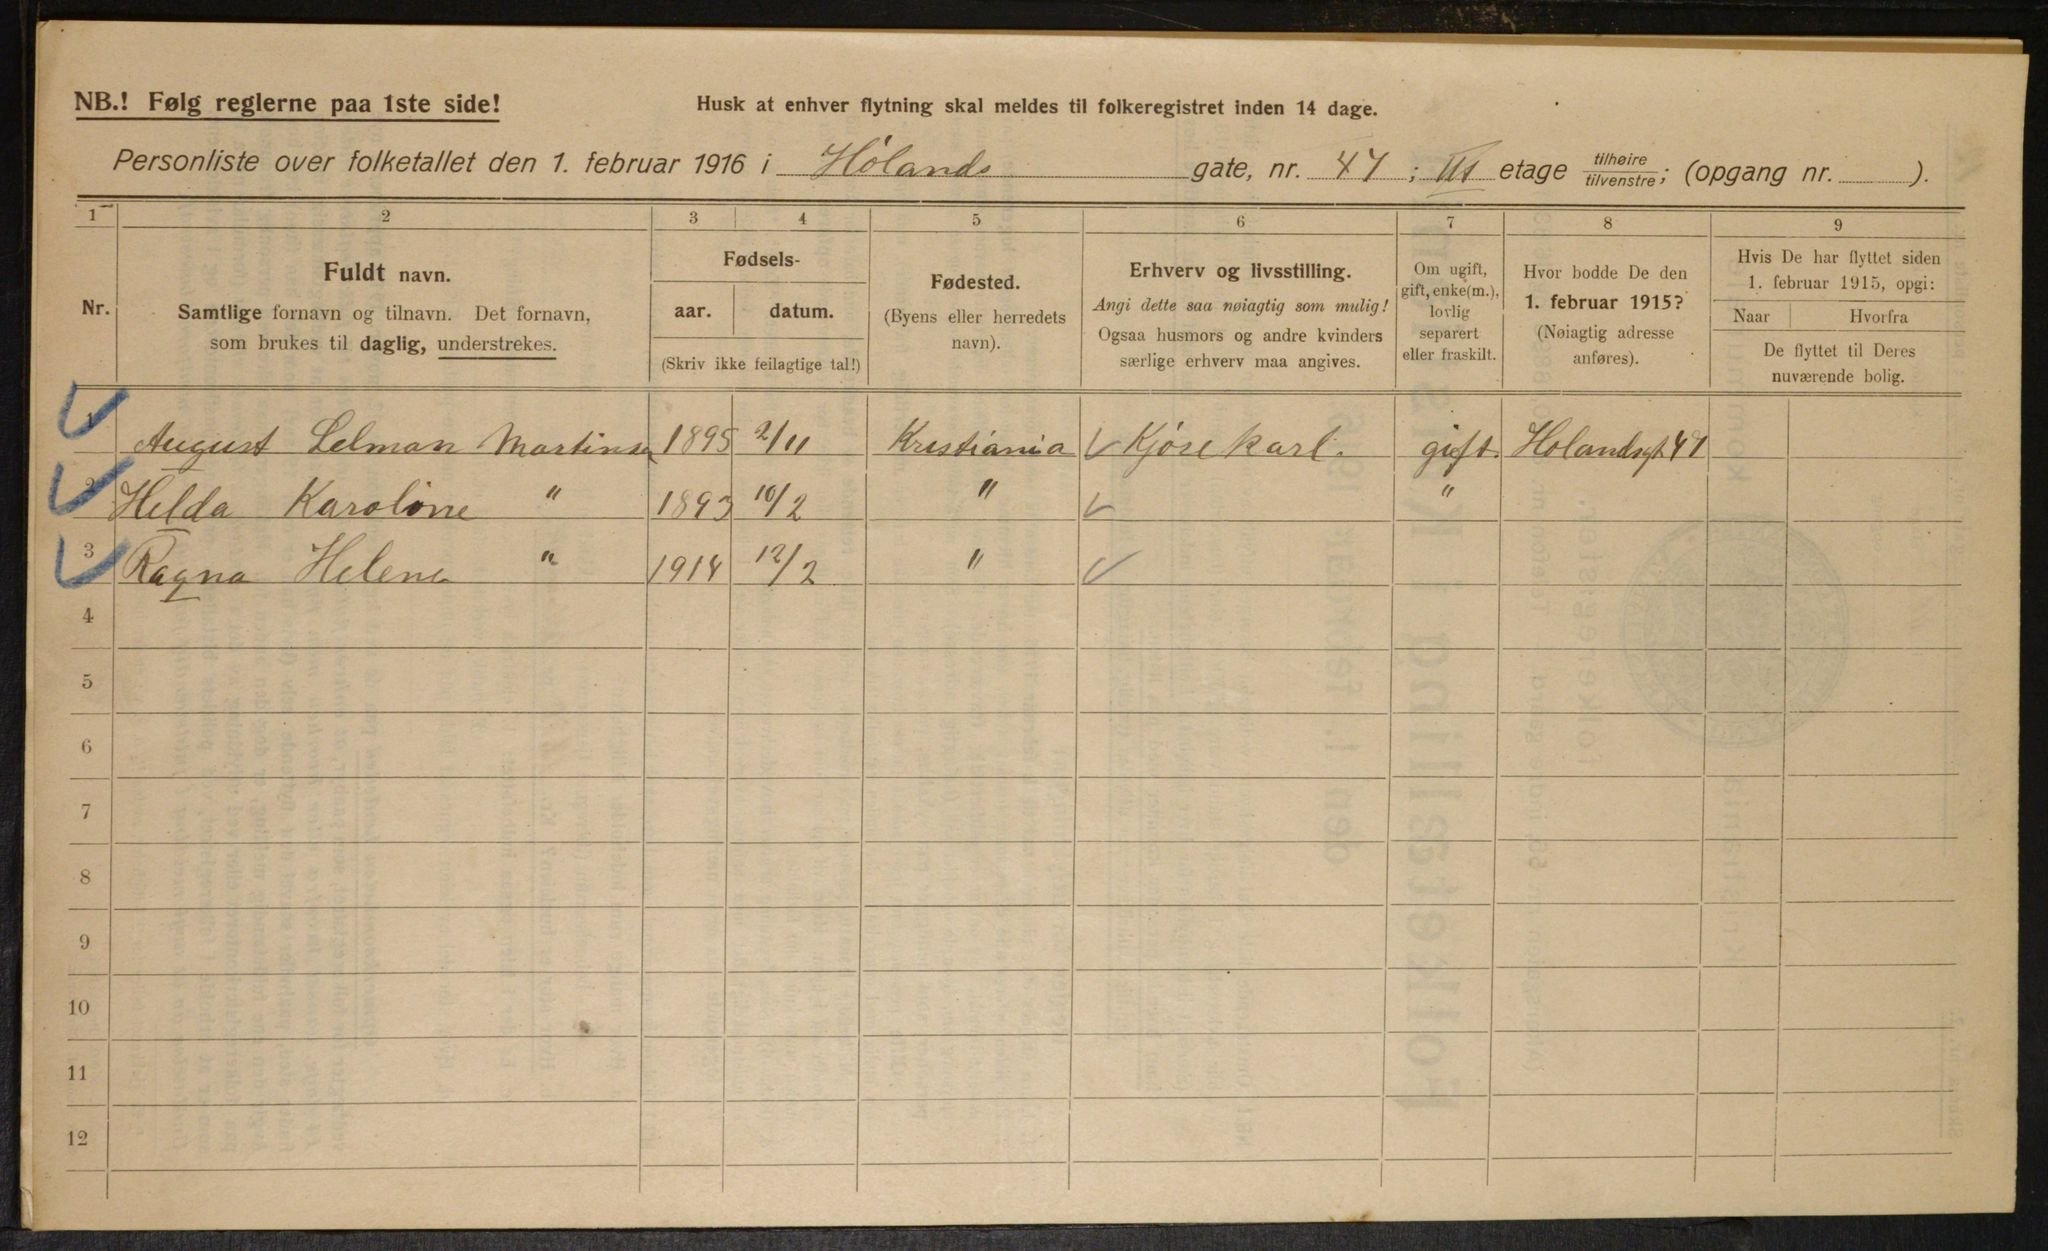 NB.! Følg reglerne paa 1ste side!
Husk at enhver flytning skal meldes til folkeregistret inden 14 dage.
Personliste over folketallet den 1. februar 1916 i Hølands gate, nr. 47; III etage tilhøire/tilvenstre; (opgang nr. ).
1 2 3 4 5 6 7 8 9
Nr.
Fuldt navn.
Samtlige fornavn og tilnavn. Det fornavn,
som brukes til daglig, understrekes.
Fødsels-
aar. datum.
(Skriv ikke feilagtige tal!)
Fødested.
(Byens eller herredets
navn).
Erhverv og livsstilling.
Angi dette saa nøiagtig som mulig!
Ogsaa husmors og andre kvinders
særlige erhverv maa angives.
Om ugift,
gift, enke(m.),
lovlig
separert
eller fraskilt.
Hvor bodde De den
1. februar 1915?
(Nøiagtig adresse
anføres).
Hvis De har flyttet siden
1. februar 1915, opgi:
Naar Hvorfra
De flyttet til Deres
nuværende bolig.
1 August Selman Martinsen 1895 2/11 Kristiania Kjørekarl. gift. Holandsgt 47
2 Helda Karoline " 1893 10/2 " "
3 Ragna Helene " 1914 12/2 "
4
5
6
7
8
9
10
11
12